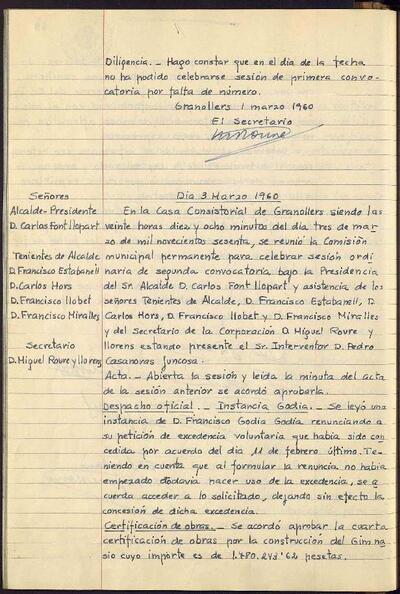 Diligencia. - Hago constar que en el día de la fecha
no ha podido celebrarse sesión de primera convo-
catoria por falta de número.
Granollers 1 marzo 1960
El Secretario
Señores
Alcalde-Presidente
D. Carlos Font Llopart
Tenientes de Alcalde
D. Francisco Estabanell
D. Carlos Hors
D. Francisco Llobet
D. Francisco Miralles
Secretario
D. Miguel Roure y Llorens
Día 3 Marzo 1960
En la Casa Consistorial de Granollers siendo las
veinte horas diez y ocho minutos del día tres de mar
zo de mil novecientos sesenta, se reunió la Comisión
municipal permanente para celebrar sesión ordi
naria de segunda convocatoria bajo la Presidencia
del Sr. Alcalde D. Carlos Font Llopart y asistencia de los
señores Tenientes de Alcalde, D. Francisco Estabanell, D.
Carlos Hors, D. Francisco Llobet y D. Francisco Miralles
y del Secretario de la Corporación D. Miguel Roure y
Llorens estando presente el Sr. Interventor D. Pedro
Casanovas Juncosa.
Acta. - Abierta la sesión y leída la minuta del acta
de la sesión anterior se acordó aprobarla.
Despacho oficial. - Instancia Godia. - Se leyó una
instancia de D. Francisco Godia Godia renunciando a
su petición de excedencia voluntaria que había sido con
cedida por acuerdo del día 11 de febrero último. Te-
niendo en cuenta que al formular la renuncia no había
empezado todavía hacer uso de la excedencia, se a
cuerda acceder a lo solicitado, dejando sin efecto la
concesión de dicha excedencia.
Certificación de obras. - Se acordó aprobar la cuarta
certificación de obras por la construcción del Gimna
sio cuyo importe es de 1.480.243'62 pesetas.